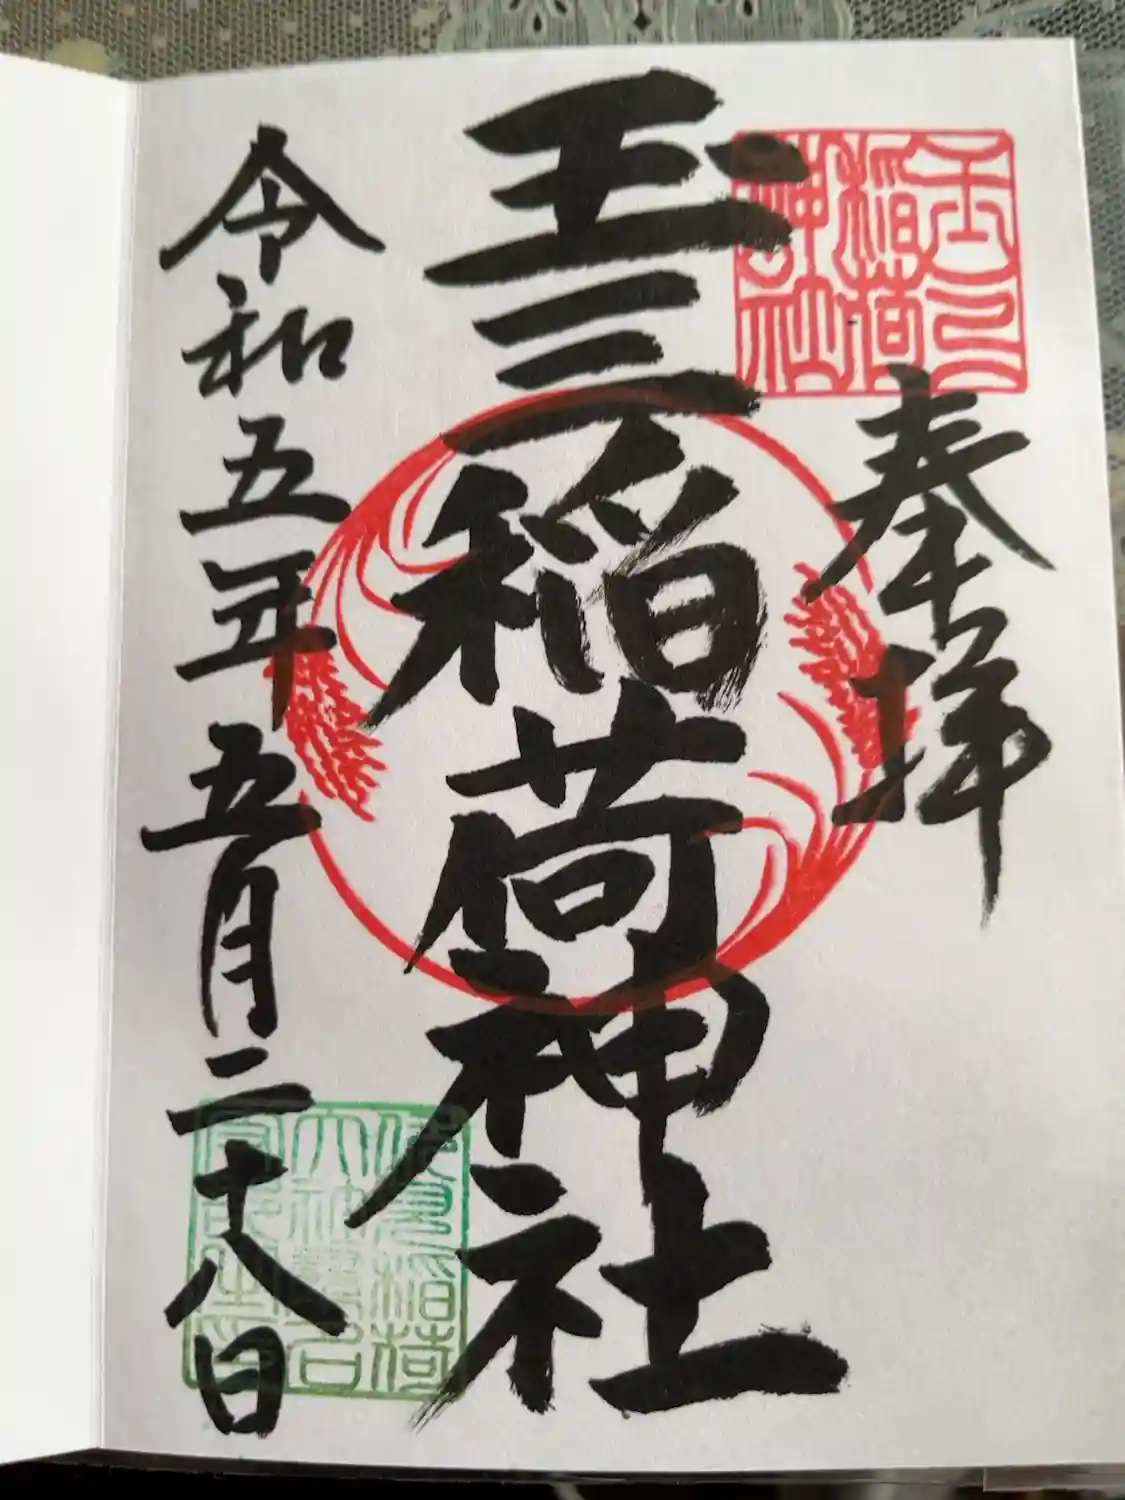 奉拝
玉三稲荷神社
令和五年五月二十八日
稲荷
神社